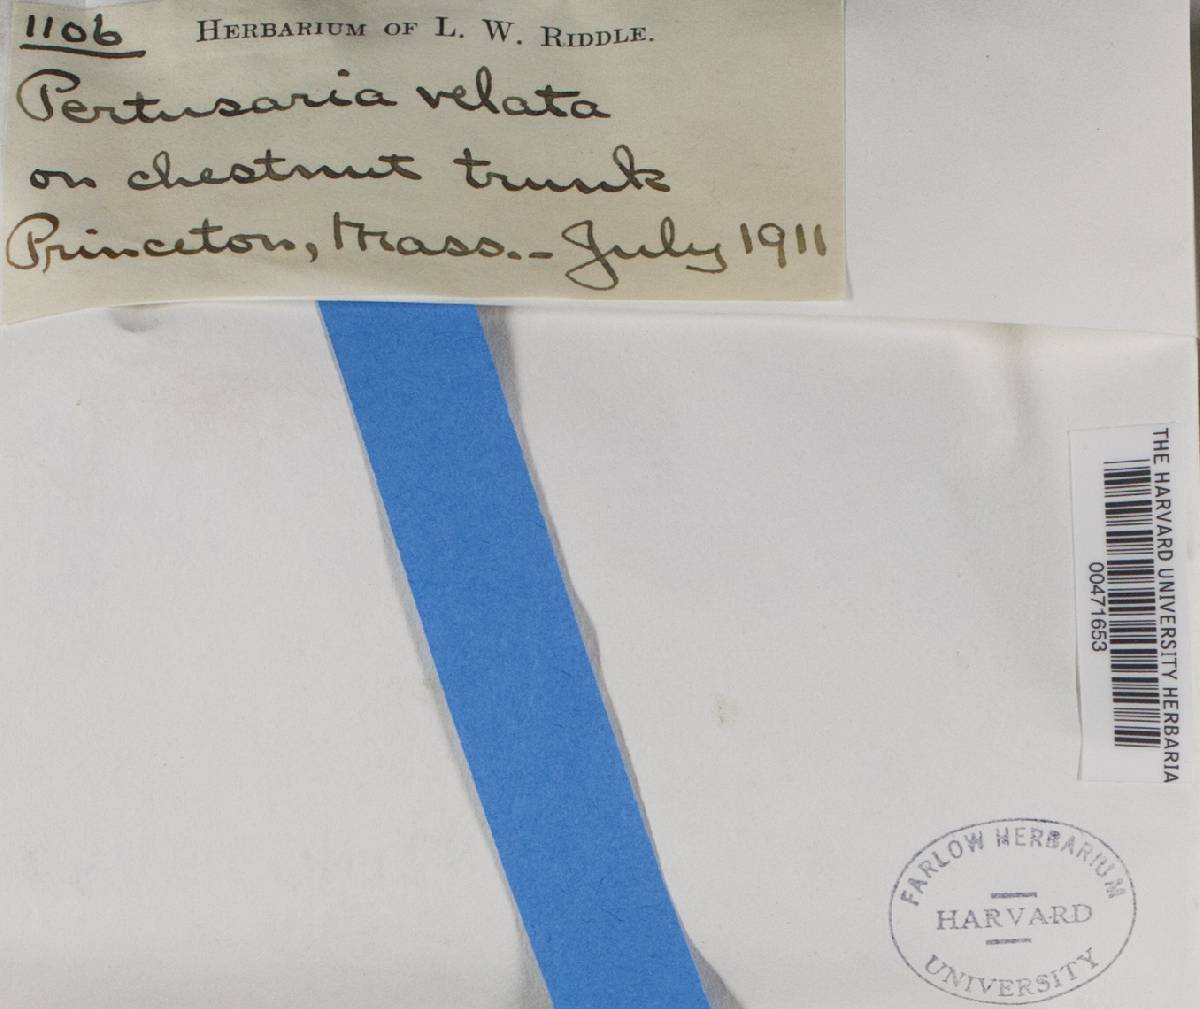 1106 HERBARIUM OF L. W. RIDDLE.
Pertusaria velata
on chestnut trunk
Princeton, Mass.- July 1911
THE HARVARD UNIVERSITY HERBARIA
00471653
FARLOW HERBARIUM
HARVARD
UNIVERSITY